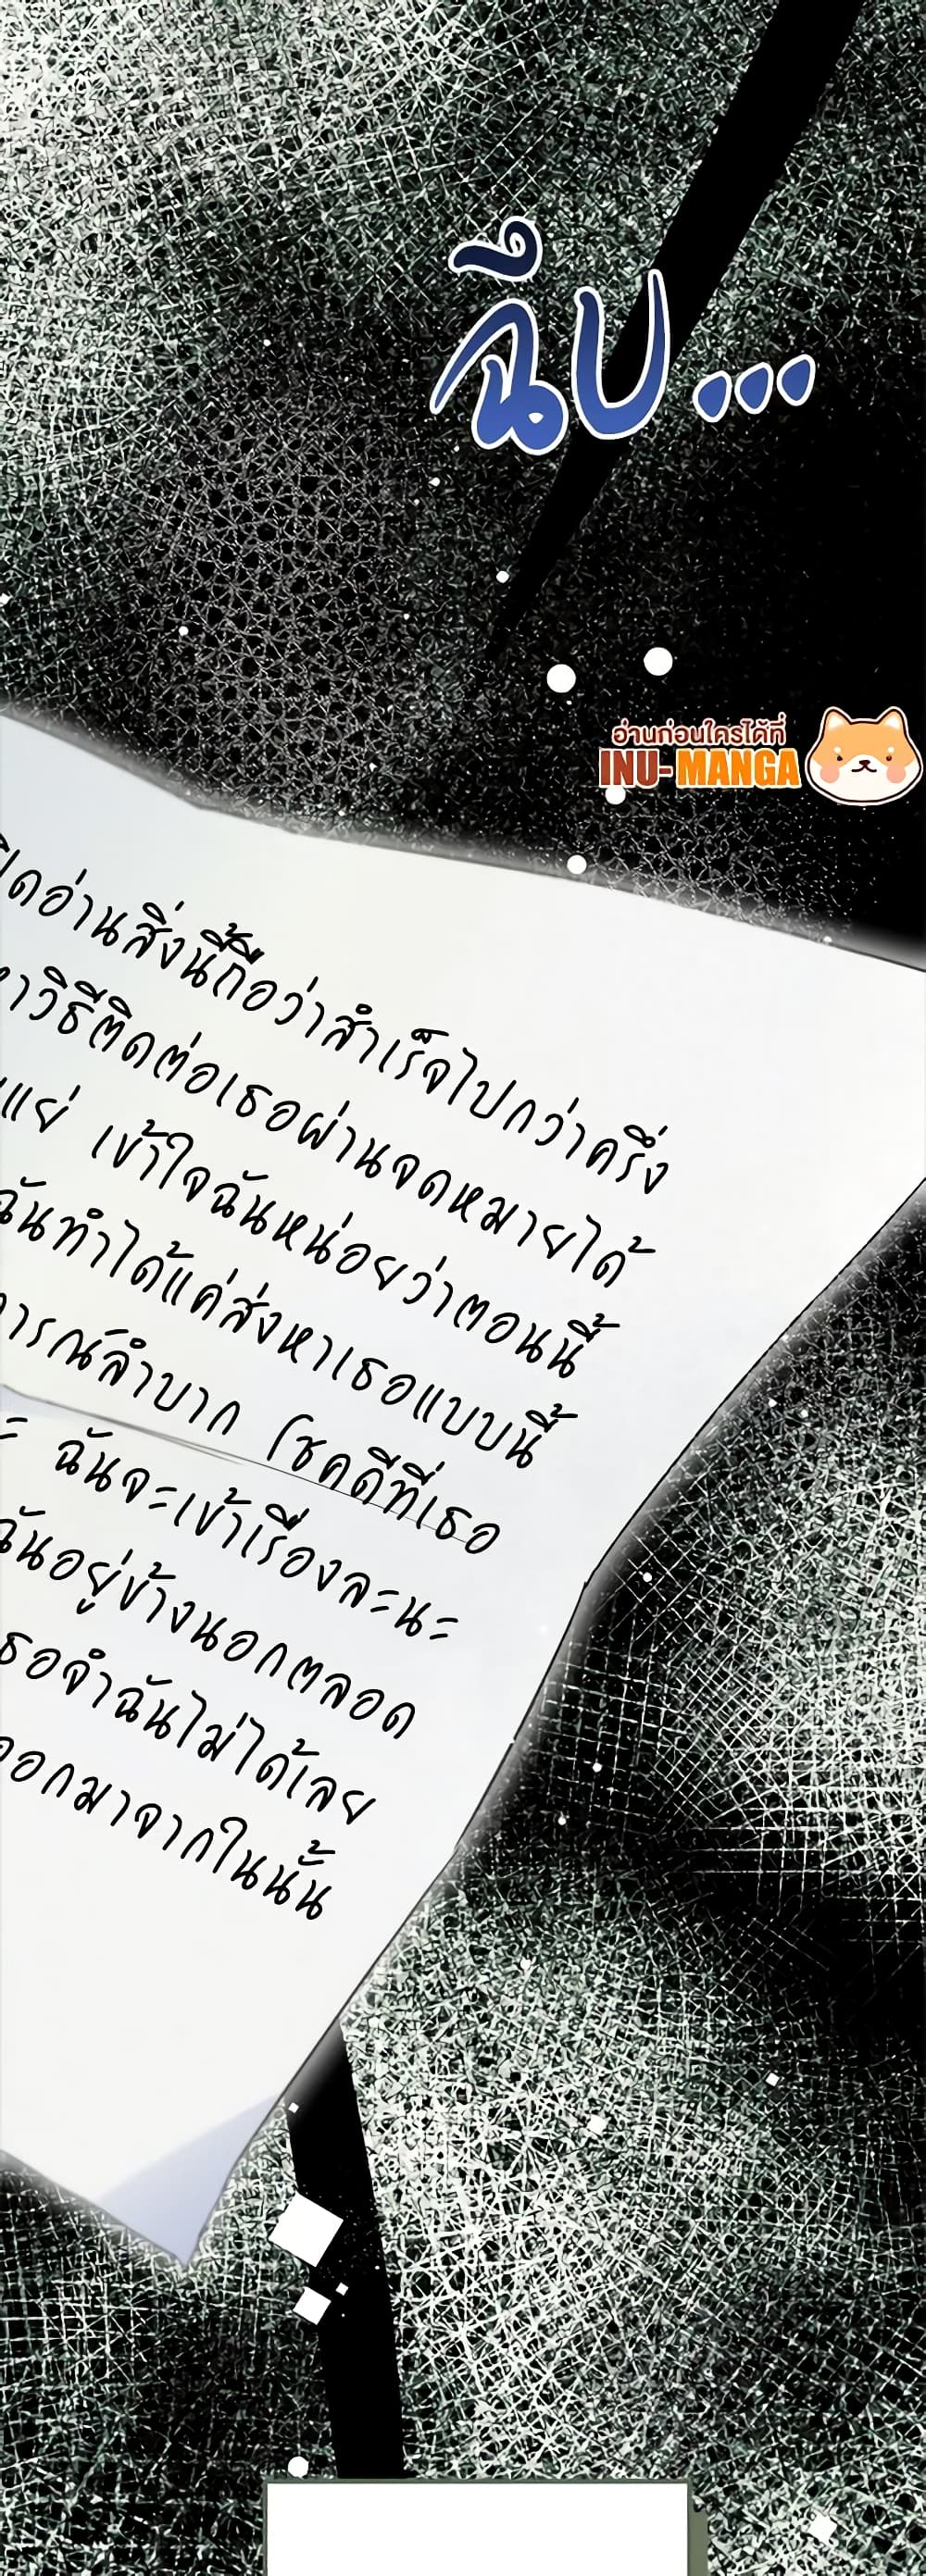 ฉึบ...
อ่านก่อนใครได้ที่
INU-MANGA
เปิดอ่านสิ่งนี้ถือว่าสำเร็จไปกว่าครึ่ง
หาวิธีติดต่อเธอผ่านจดหมายได้
แย่ เข้าใจฉันหน่อยว่าตอนนี้
ฉันทำได้แค่ส่งหาเธอแบบนี้
การณ์ลำบาก โชคดีที่เธอ
ฉันจะเข้าเรื่องละนะ
ฉันอยู่ข้างนอกตลอด
เธอจำฉันไม่ได้เลย
ออกมาจากในนั้น